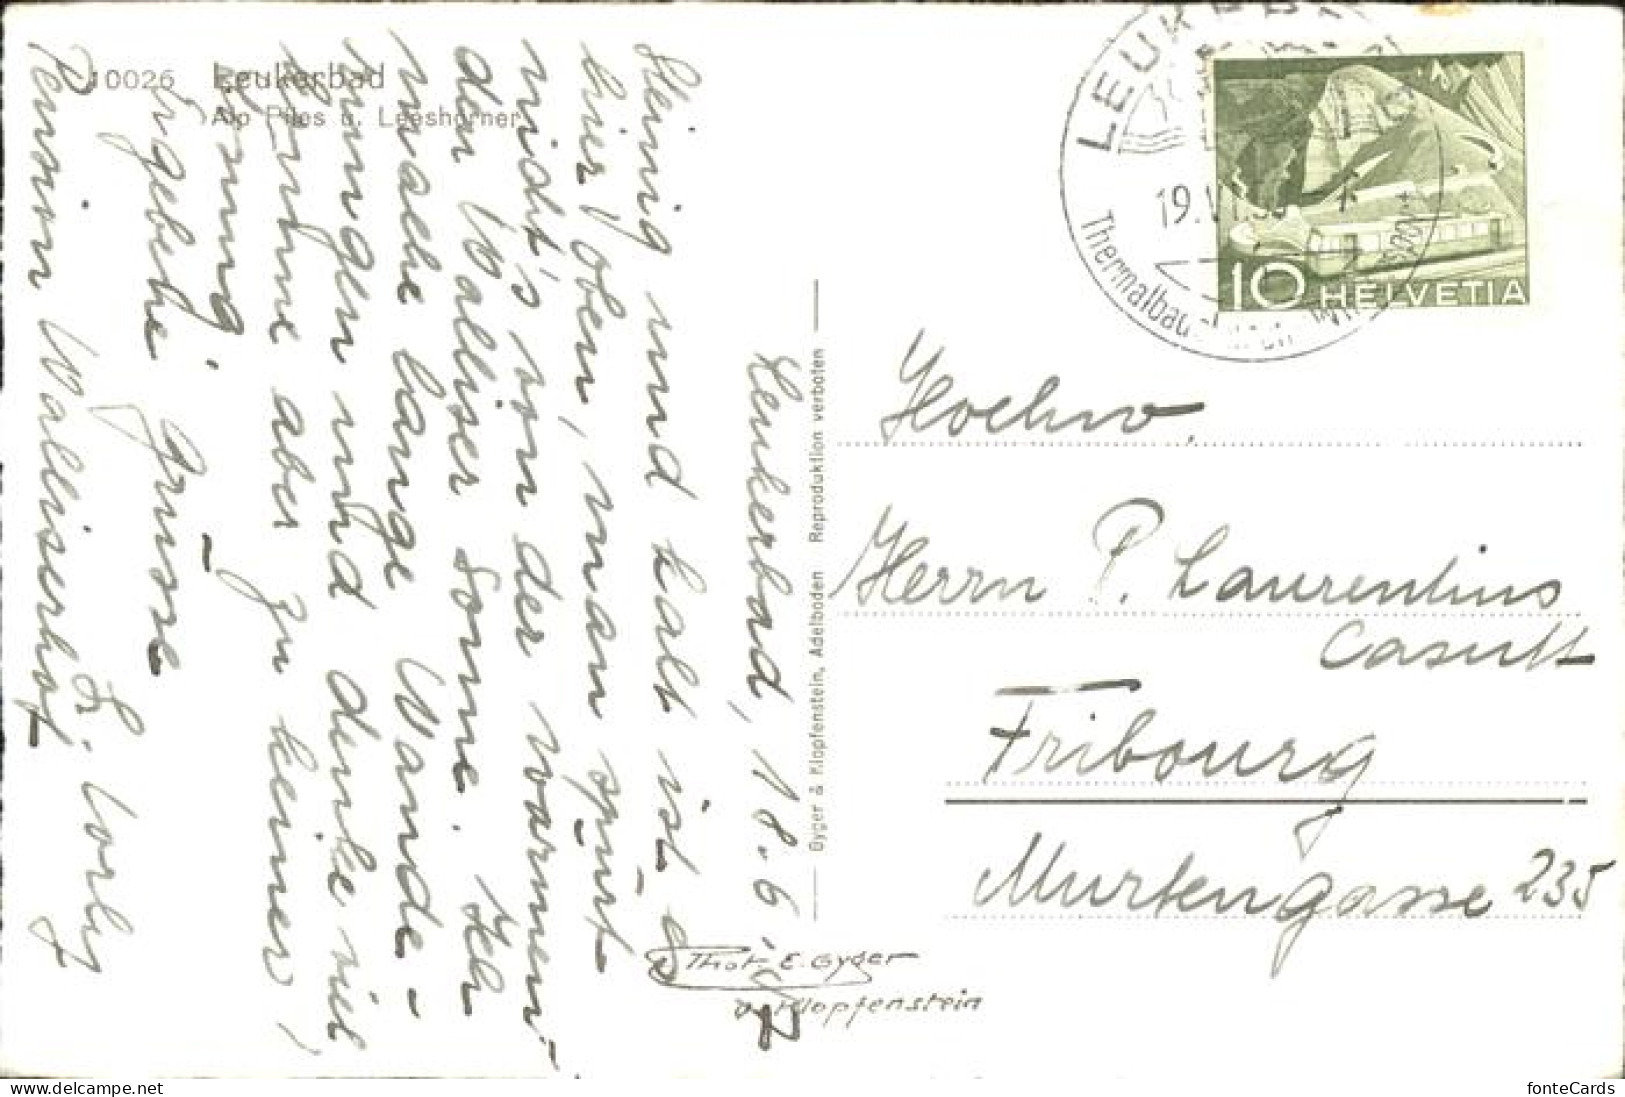 10026 Leukerbad
Alp Files u. Leeshörner
Leukerbad, 18.6.
Steinig und kalt ist es
hier oben, man spürt
nicht's von der warmen
den Walliser Sonne. Ich
mache lange Wande-
rungen und denke viel,
komme aber zu keiner
Lösung.
Ergebene Grüsse
Pension Walliserhof
Byger & Klopfenstein, Adelboden Reproduktion verboten
Phot. E. Gyger
A. Klopfenstein
LEUKERBAD
19.VI.
Thermalbad
10 HELVETIA
Hochw.
Herrn P. Laurentius
Casutt
Fribourg
Murtengasse 235
fonteCards
www.delcampe.net